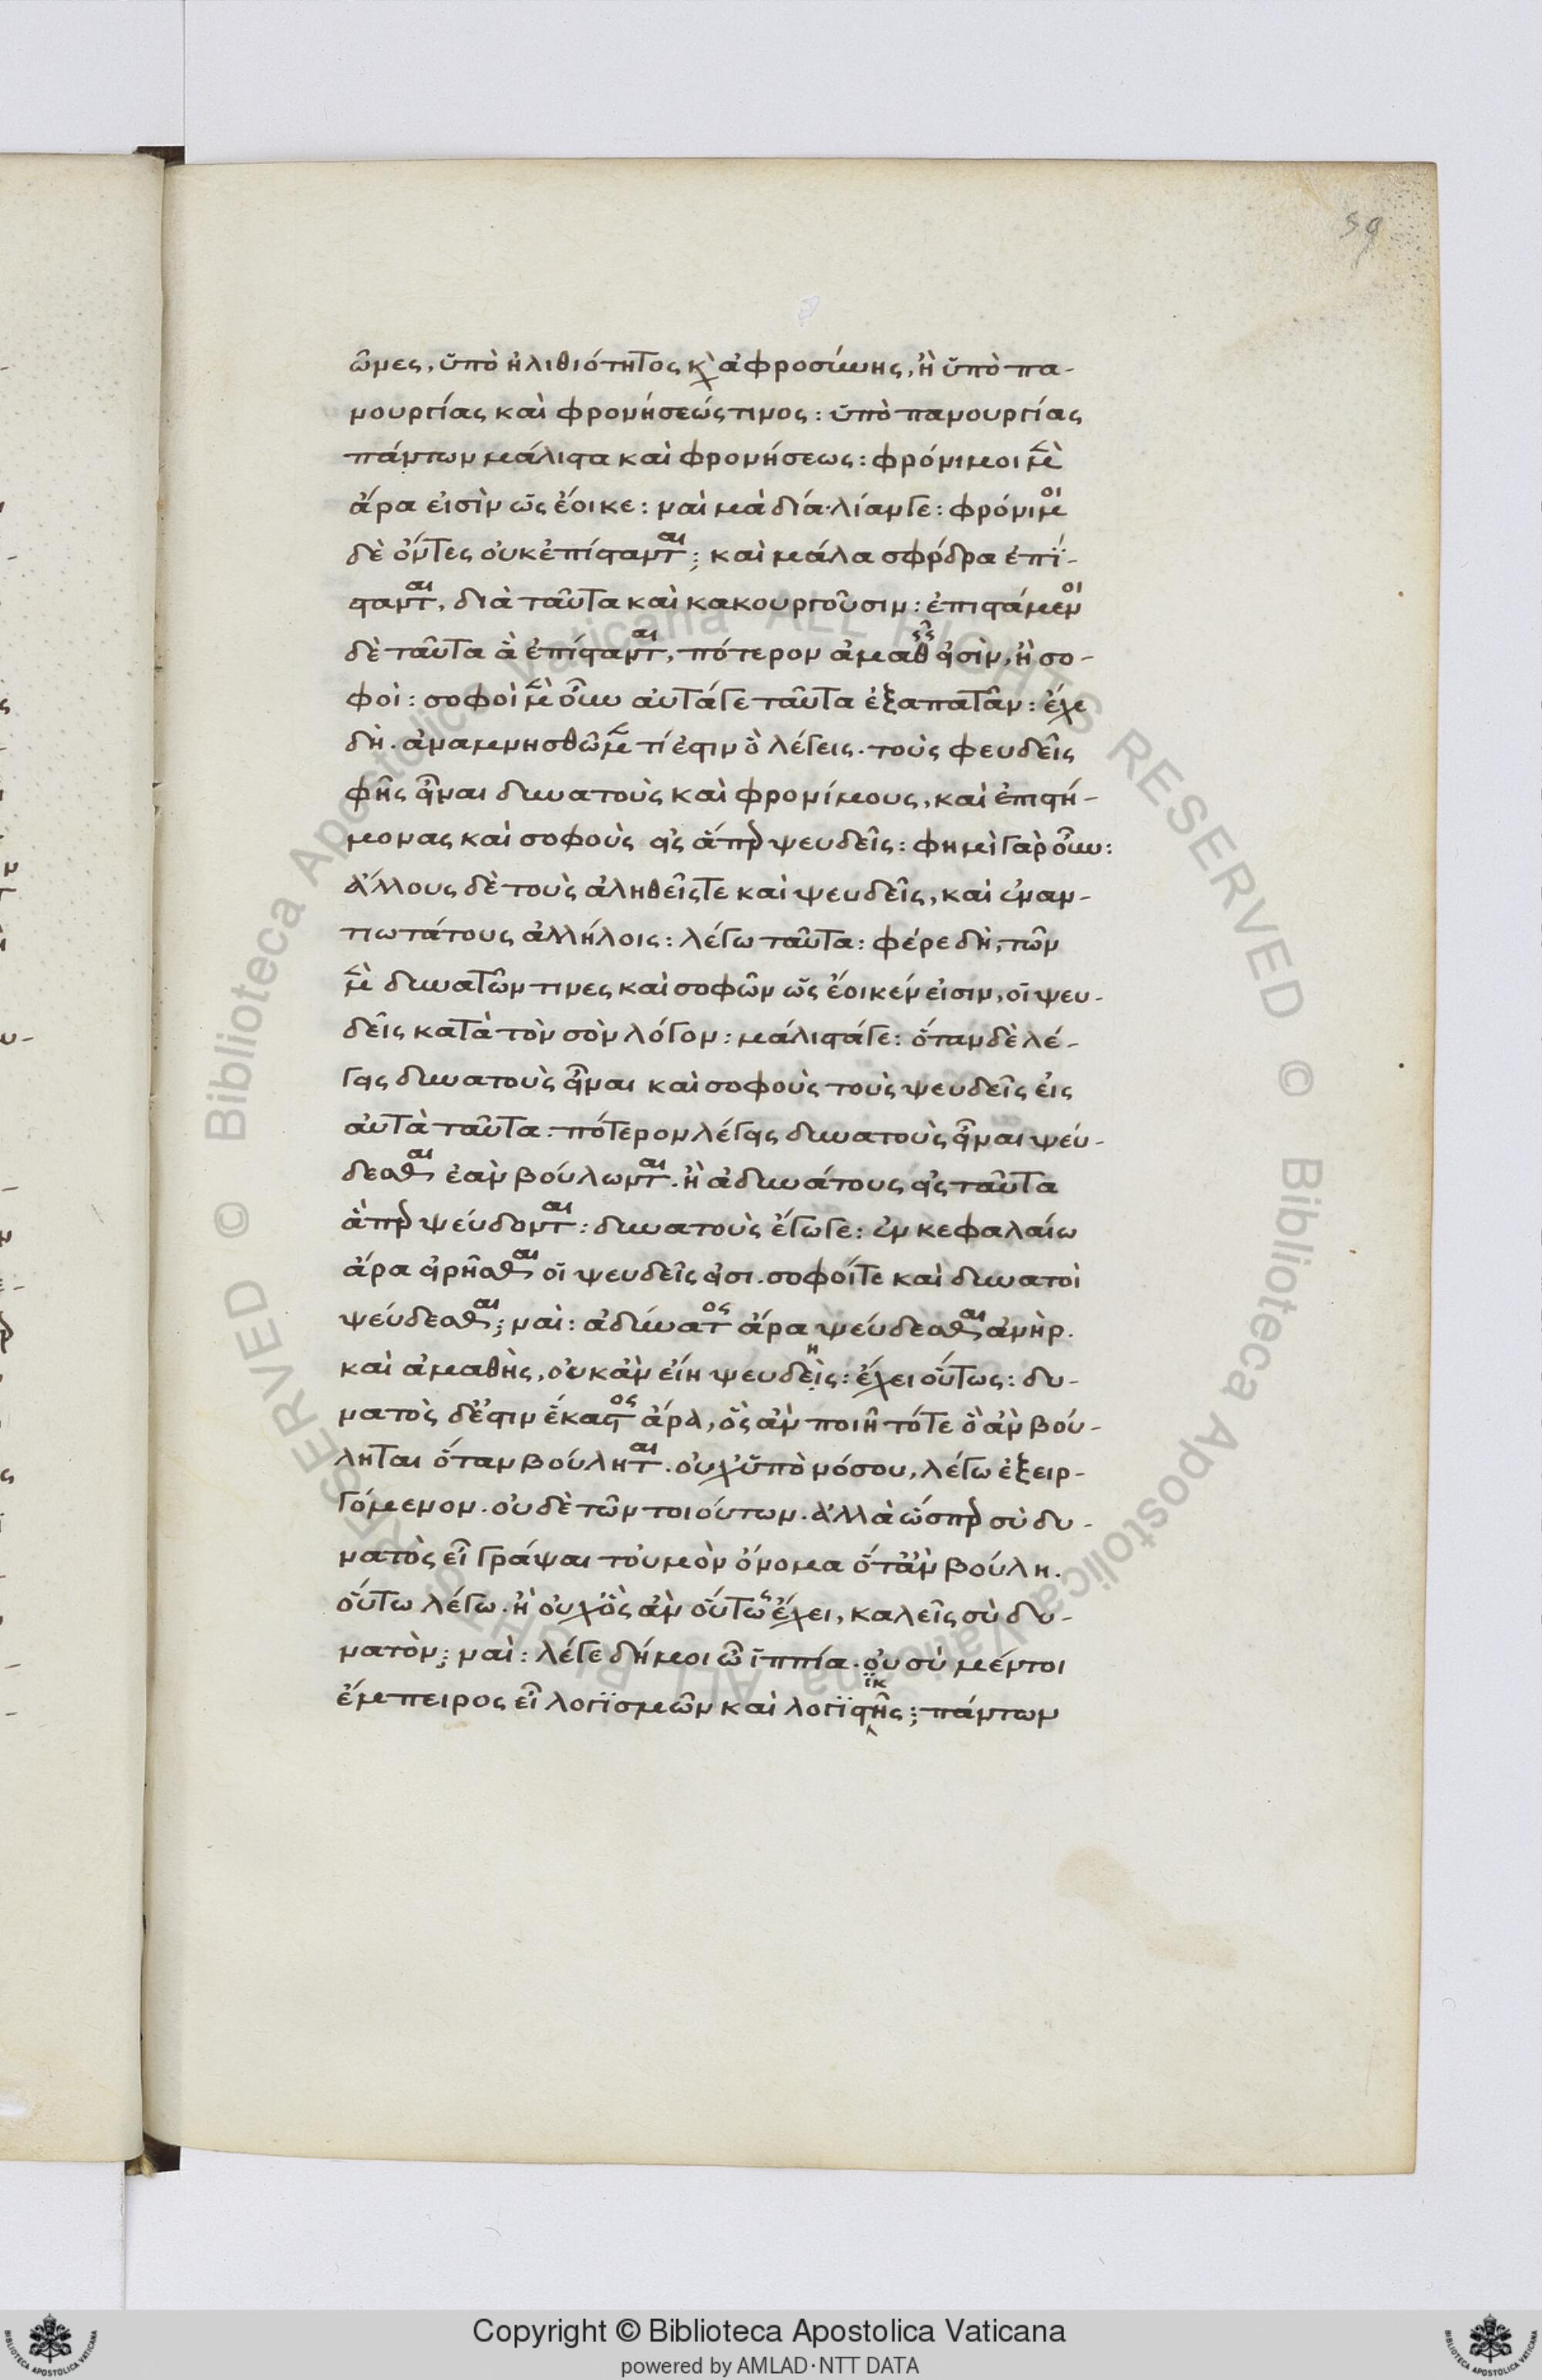 59
ῶντες, ὑπὸ ἠλιθιότητος κ̀ ἀφροσύνης, ἢ ὑπὸ πα-
νουργίας καὶ φρονήσεώς τινος: ὑπὸ πανουργίας
πάντων μάλιστα καὶ φρονήσεως: φρόνιμοι μὲν
ἄρα εἰσὶν ὡς ἔοικε: ναὶ μὰ δία· λίαν γε: φρόνιμοι
δὲ ὄντες οὐκ ἐπίστανται; καὶ μάλα σφόδρα ἐπί-
στανται, διὰ ταῦτα καὶ κακουργοῦσιν: ἐπιστάμενοι
δὲ ταῦτα ἃ ἐπίστανται, πότερον ἀμαθεῖς εἰσὶν, ἢ σο-
φοὶ: σοφοὶ μὲν οὖν αὐτά γε ταῦτα ἐξαπατᾶν: ἔχε
δὴ. ἀναμνησθῶμεν τί ἐστιν ὃ λέγεις. τοὺς ψευδεῖς
φῂς εἶναι δυνατοὺς καὶ φρονίμους, καὶ ἐπιστή-
μονας καὶ σοφοὺς εἰς ἅπερ ψευδεῖς: φημὶ γὰρ οὖν:
ἄλλους δὲ τοὺς ἀληθεῖς τε καὶ ψευδεῖς, καὶ ἐναν-
τιωτάτους ἀλλήλοις: λέγω ταῦτα: φέρε δὴ, τῶν
μὲν δυνατῶν τινες καὶ σοφῶν ὡς ἔοικέν εἰσιν, οἱ ψευ-
δεῖς κατὰ τὸν σὸν λόγον: μάλιστά γε: ὅταν δὲ λέ-
γεις δυνατοὺς εἶναι καὶ σοφοὺς τοὺς ψευδεῖς εἰς
αὐτὰ ταῦτα. πότερον λέγεις δυνατοὺς εἶναι ψεύ-
δεσθαι ἐὰν βούλωνται. ἢ ἀδυνάτους εἰς ταῦτα
ἅπερ ψεύδονται: δυνατοὺς ἔγωγε: ἐν κεφαλαίω
ἄρα εἰρῆσθαι οἱ ψευδεῖς εἰσι. σοφοί τε καὶ δυνατοὶ
ψεύδεσθαι; ναὶ: ἀδύνατος ἄρα ψεύδεσθαι ἀνὴρ.
καὶ ἀμαθὴς, οὐκ ἂν εἴη ψευδεὶς: ἔχει οὕτως: δυ-
νατὸς δέ ἐστιν ἕκαστος ἄρα, ὃς ἂν ποιῆ τότε ὃ ἂν βού-
ληται ὅταν βούληται. οὐχ ὑπὸ νόσου, λέγω ἐξειρ-
γόμενον. οὐδὲ τῶν τοιούτων. ἀλλὰ ὥσπερ σὺ δυ-
νατὸς εἶ γράψαι τοὐμὸν ὄνομα ὅτ' ἂν βούλη.
οὕτω λέγω. ἢ οὐχ ὃς ἂν οὕτως ἔχει, καλεῖς σὺ δυ-
νατὸν; ναὶ: λέγε δή μοι ὦ ἱππία. οὐ σὺ μέντοι
ἔμπειρος εἶ λογϊσμῶν καὶ λογϊστικῆς; πάντων
Copyright © Biblioteca Apostolica Vaticana
powered by AMLAD·NTT DATA